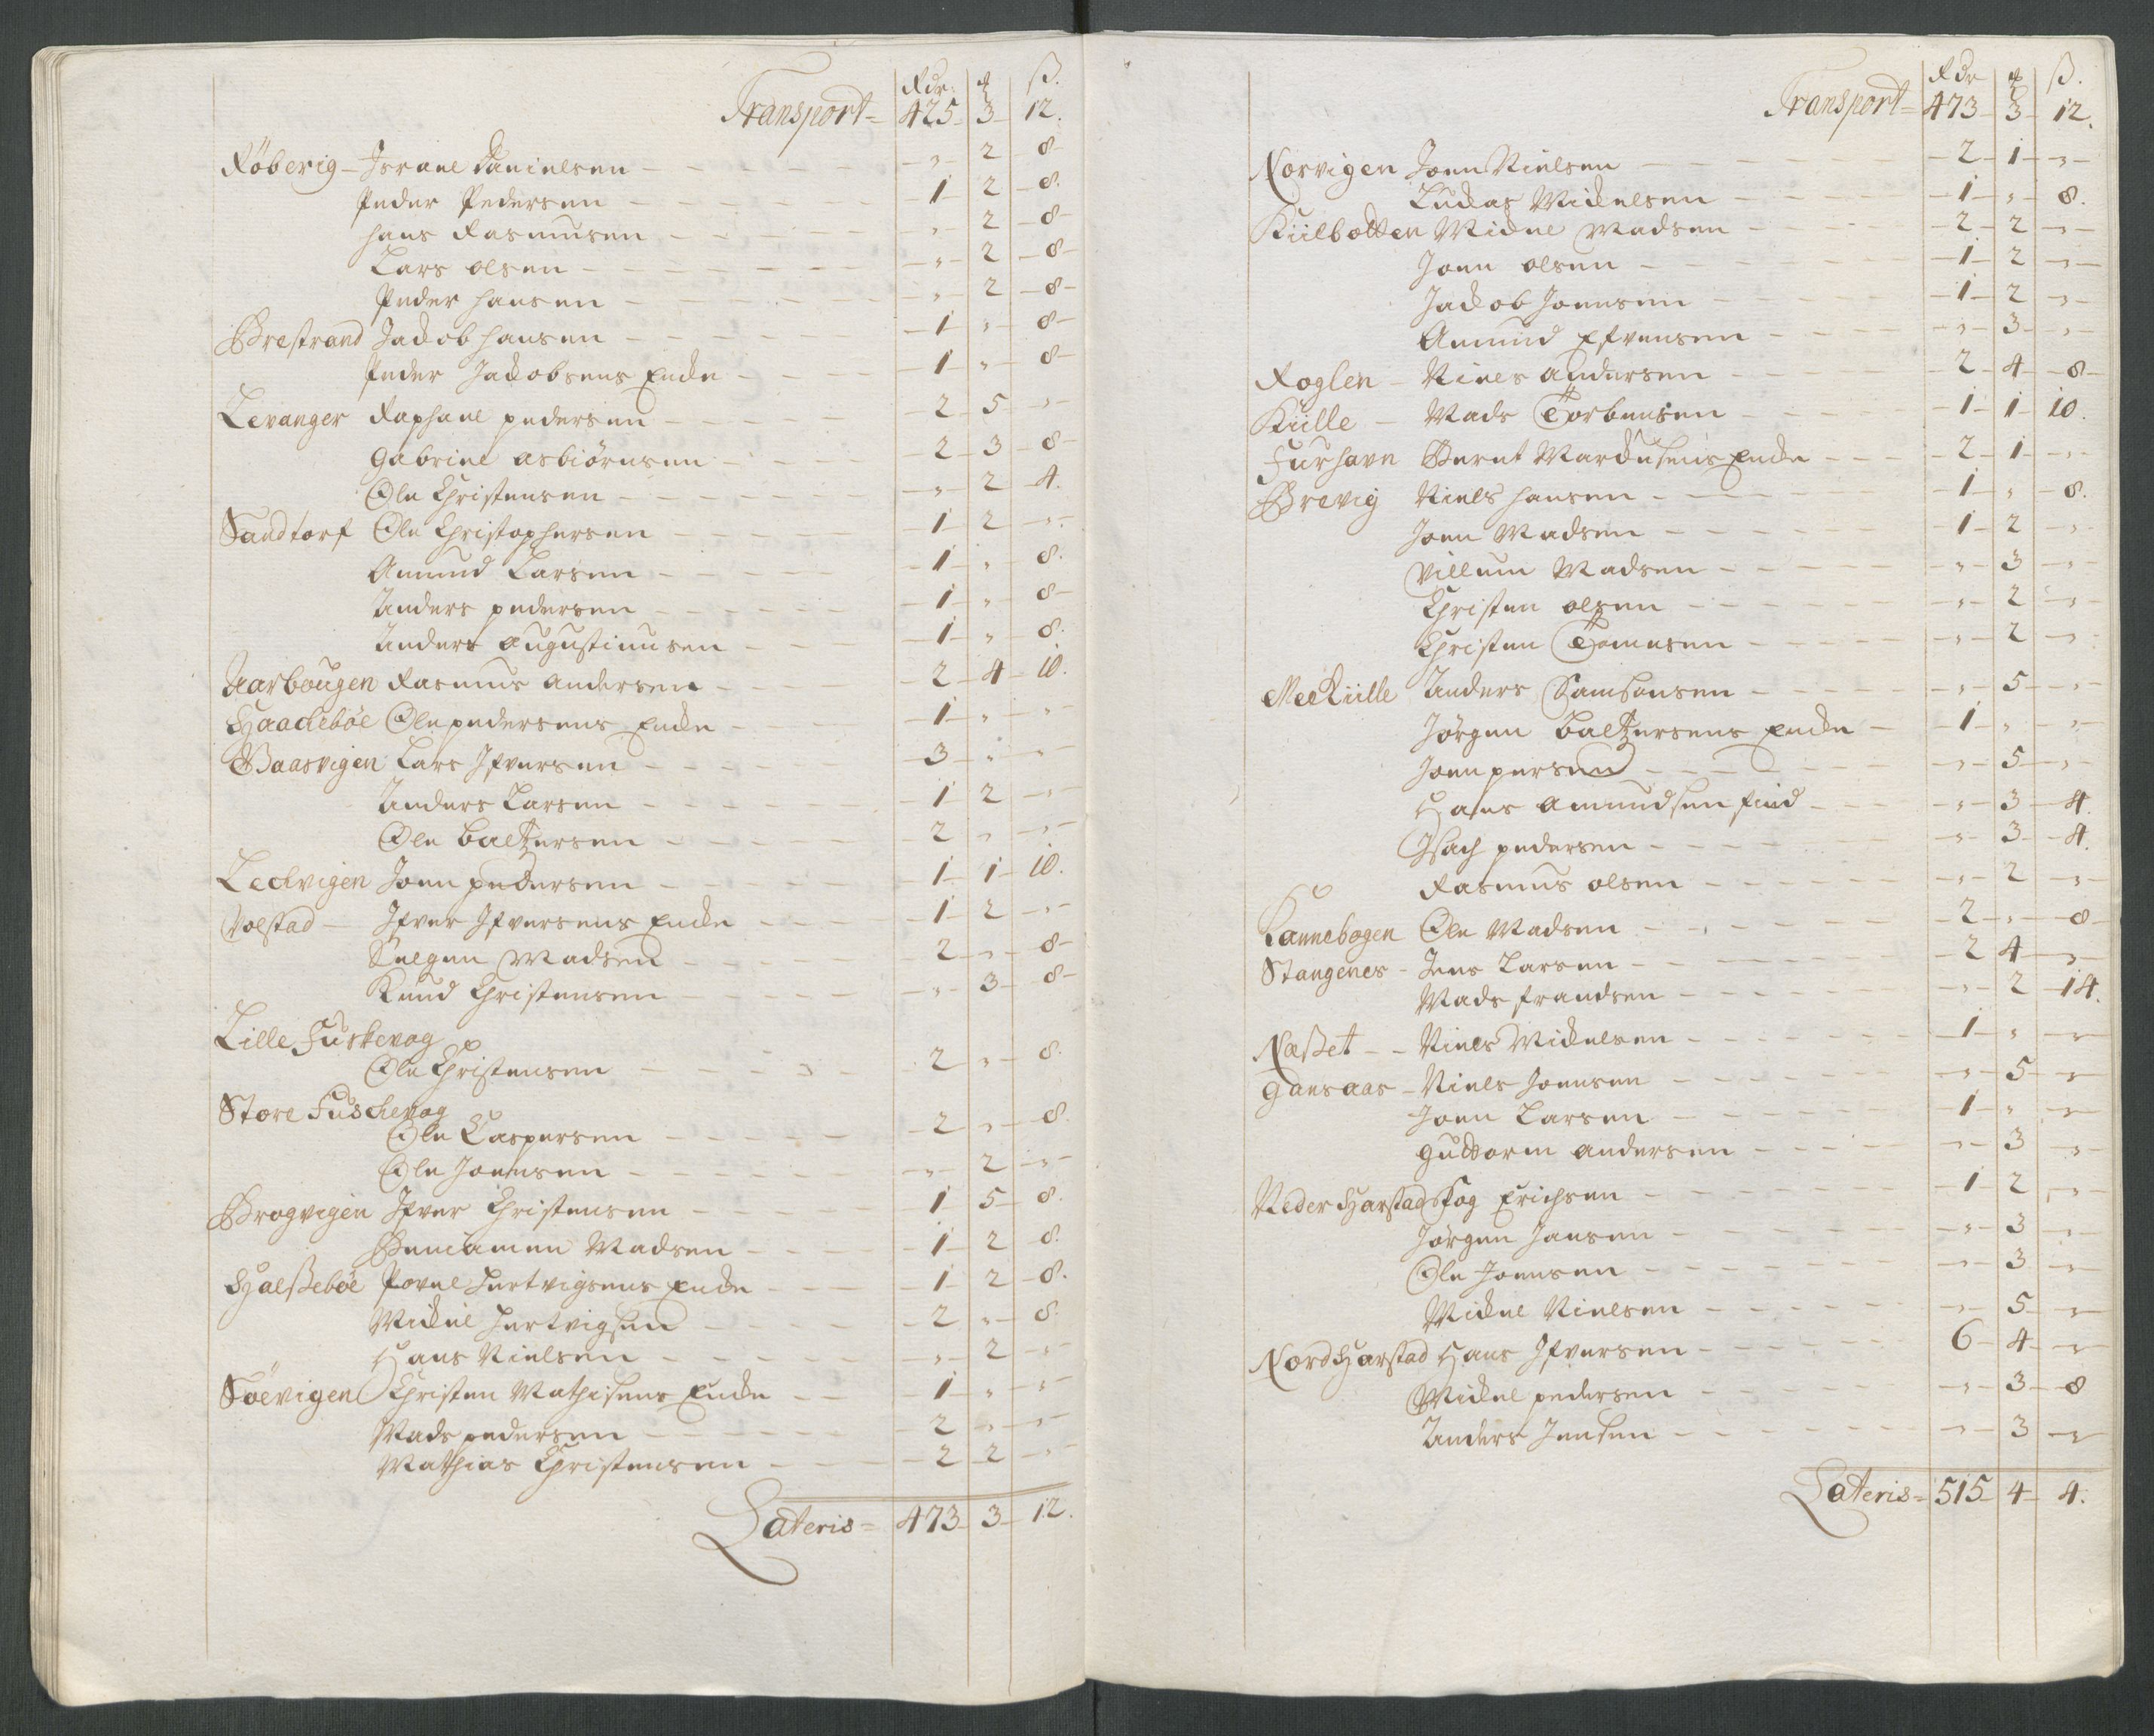 Rdr: ₰ ß.
Transport = 425 - 3 - 12.
Röberig - Israel Danielsen - „ - 2 - 8
Peder Pedersen - 1 - 2 - 8.
Hans Rasmusen - „ - 2 - 8
Lars Olsen - „ - 2 - 8
Peder Hansen - „ - 2 - 8
Brestrand Jackob Hansen - 1 - „ - 8
Peder Jackobsens Encke - 1 - „ - 8
Levanger Raphael Pedersen - 2 - 5 - „
Gabriel Asbiørnsen - 2 - 3 - 8
Ole Christensen - „ - 2 - 4.
Sandtorf Ole Christophersen - 1 - 2 - „
Amund Larsen - 1 - „ - 8.
Anders Pedersen - 1 - „ - 8
Anders Augustinusen - 1 - „ - 8.
Aarbougen Rasmus Andersen - 2 - 4 - 10.
Haachebøe Ole Pedersens Encke - 1 - „ - „
Vaasvigen Lars Ifversen - 3 - „ - „
Anders Larsen - 1 - 2 - „
Ole Baltzersen - 2 - „ - „
Leckvigen Joen Pedersen - 1 - 1 - 10.
Volstad - Ifver Ifversens Encke - 1 - 2 - „
Madsen - 2 - „ - 8
Knud Christensen - „ - 3 - 8
Lille Fuskevog
Ole Christensen - 2 - „ - 8.
Store Fuschevog
Ole Caspersen - 2 - „ - 8.
Ole Joensen - „ - 2 - „
Brogvigen Ifver Christensen - 1 - 5 - 8.
Benjamen Madsen - 1 - 2 - 8.
Halßebøe Povel Hertvigsens Encke - 1 - 2 - 8.
Mickel Hertvigsen - 2 - „ - 8.
Hans Nielsen - „ - 2 - „
Søevigen Christen Mathisens Encke - 1 - „ - „
Mads Pedersen - 2 - „ - „
Mathias Christensen - 2 - 2 - „
Lateris = 473 - 3 - 12.
Rdr ₰ ß.
Transport = 473 - 3 - 12.
Norvigen Joen Nielsen - 2 - 1 - „
Luckas Mickelsen - 1 - „ - 8.
Kiilbotten Mickel Madsen - 2 - 2 - „
Joen Olsen - 1 - 2 - „
Jackob Joensen - 1 - 2 - „
Amund Efvensen - „ - 3 - „
Roglen - Niels Andersen - 2 - 4 - 8
Kiille - Mads Torbensen - 1 - 1 - 10.
Furhavn Bernt Marckusens Encke - 2 - 1 - „
Brevig Niels Hansen - 1 - „ - 8.
Joen Madsen - 1 - 2 - „
Villum Madsen - „ - 3 - „
Christen Olsen - „ - 2 - „
Christen Tomesen - „ - 2 - „
MeeKiille Anders Samsonsen - „ - 5 - „
Jørgen Baltzersens Encke - 1 - „ - „
Joen Persen - „ - 5 - „
Hans Amundsen find - „ - 3 - 4.
Isach Pedersen - „ - 3 - 4.
Rasmus Olsen - „ - 2 - „
Kannebogen Ole Madsen - 2 - „ - 8
Stangenes - Jens Larsen - 2 - 4 - „
Mads Frandsen - „ - 2 - 14.
Naßet - - Niels Mickelsen - 1 - „ - „
Gansaas - Niels Joensen - „ - 5 - „
Joen Larsen - 1 - „ - „
Guttorm Andersen - „ - 3 - „
Neder Harstad Skog Erichsen - 1 - 2 - „
Jørgen Jansen - „ - 3 - „
Ole Joensen - „ - 3 - „
Mickel Nielsen - „ - 5 - „
Nord Harstad Hans Ifversen - 6 - 4 - „
Mickel Pedersen - „ - 3 - 8
Anders Jensen - „ - 3 - „
Lateris = 515 - 4 - 4.